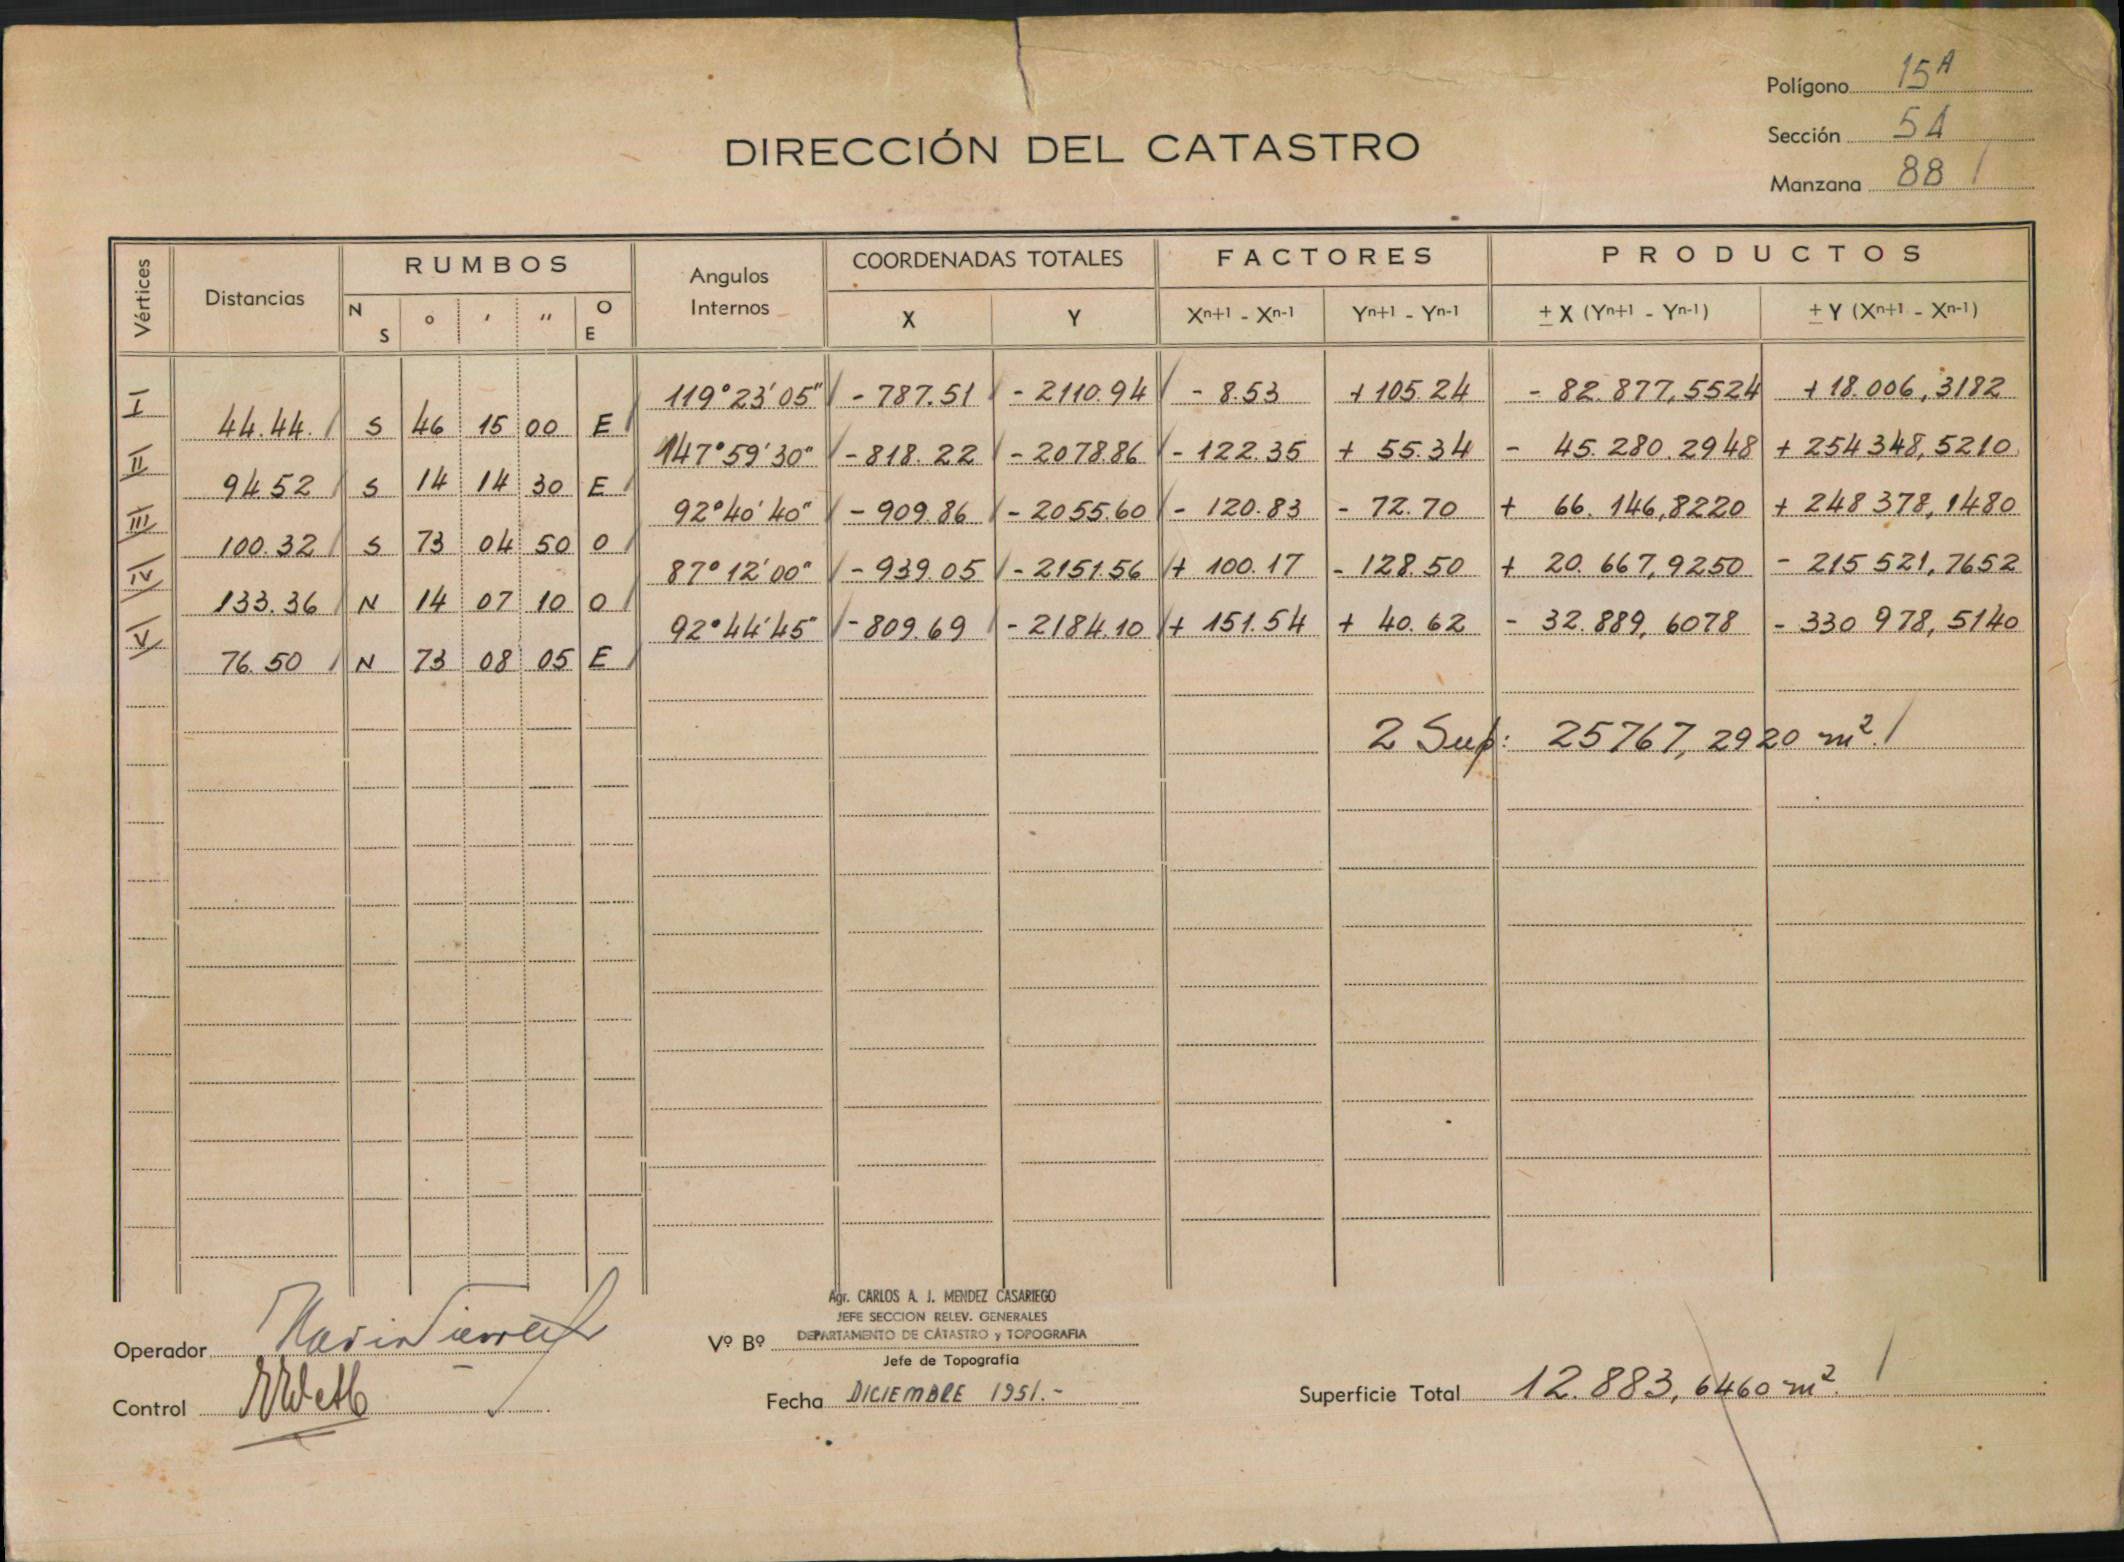 Polígono 15A
Sección 5A
Manzana 88
DIRECCIÓN DEL CATASTRO
Vértices Distancias RUMBOS Angulos Internos COORDENADAS TOTALES FACTORES PRODUCTOS
N S ° ' " O E X Y Xn+1 - Xn-1 Yn+1 - Yn-1 ± X (Yn+1 - Yn-1) ± Y (Xn+1 - Xn-1)
I 119°23'05" - 787.51 - 2110.94 - 8.53 + 105.24 - 82.877,5524 + 18.006,3182
44.44 S 46 15 00 E
II 147°59'30" - 818.22 - 2078.86 - 122.35 + 55.34 - 45.280.2948 + 254348,5210
94.52 S 14 14 30 E
III 92°40'40" - 909.86 - 2055.60 - 120.83 - 72.70 + 66.146,8220 + 248378,1480
100.32 S 73 04 50 O
IV 87°12'00" - 939.05 - 2151.56 + 100.17 - 128.50 + 20.667,9250 - 215521,7652
133.36 N 14 07 10 O
V 92°44'45" - 809.69 - 2184.10 + 151.54 + 40.62 - 32.889,6078 - 330978,5140
76.50 N 73 08 05 E
2 Sup: 25767,2920 m².
Agr. CARLOS A. J. MENDEZ CASARIEGO
JEFE SECCION RELEV. GENERALES
DEPARTAMENTO DE CATASTRO y TOPOGRAFIA
Operador
Vº Bº
Jefe de Topografía
Control
Fecha DICIEMBRE 1951.-
Superficie Total 12.883,6460 m².